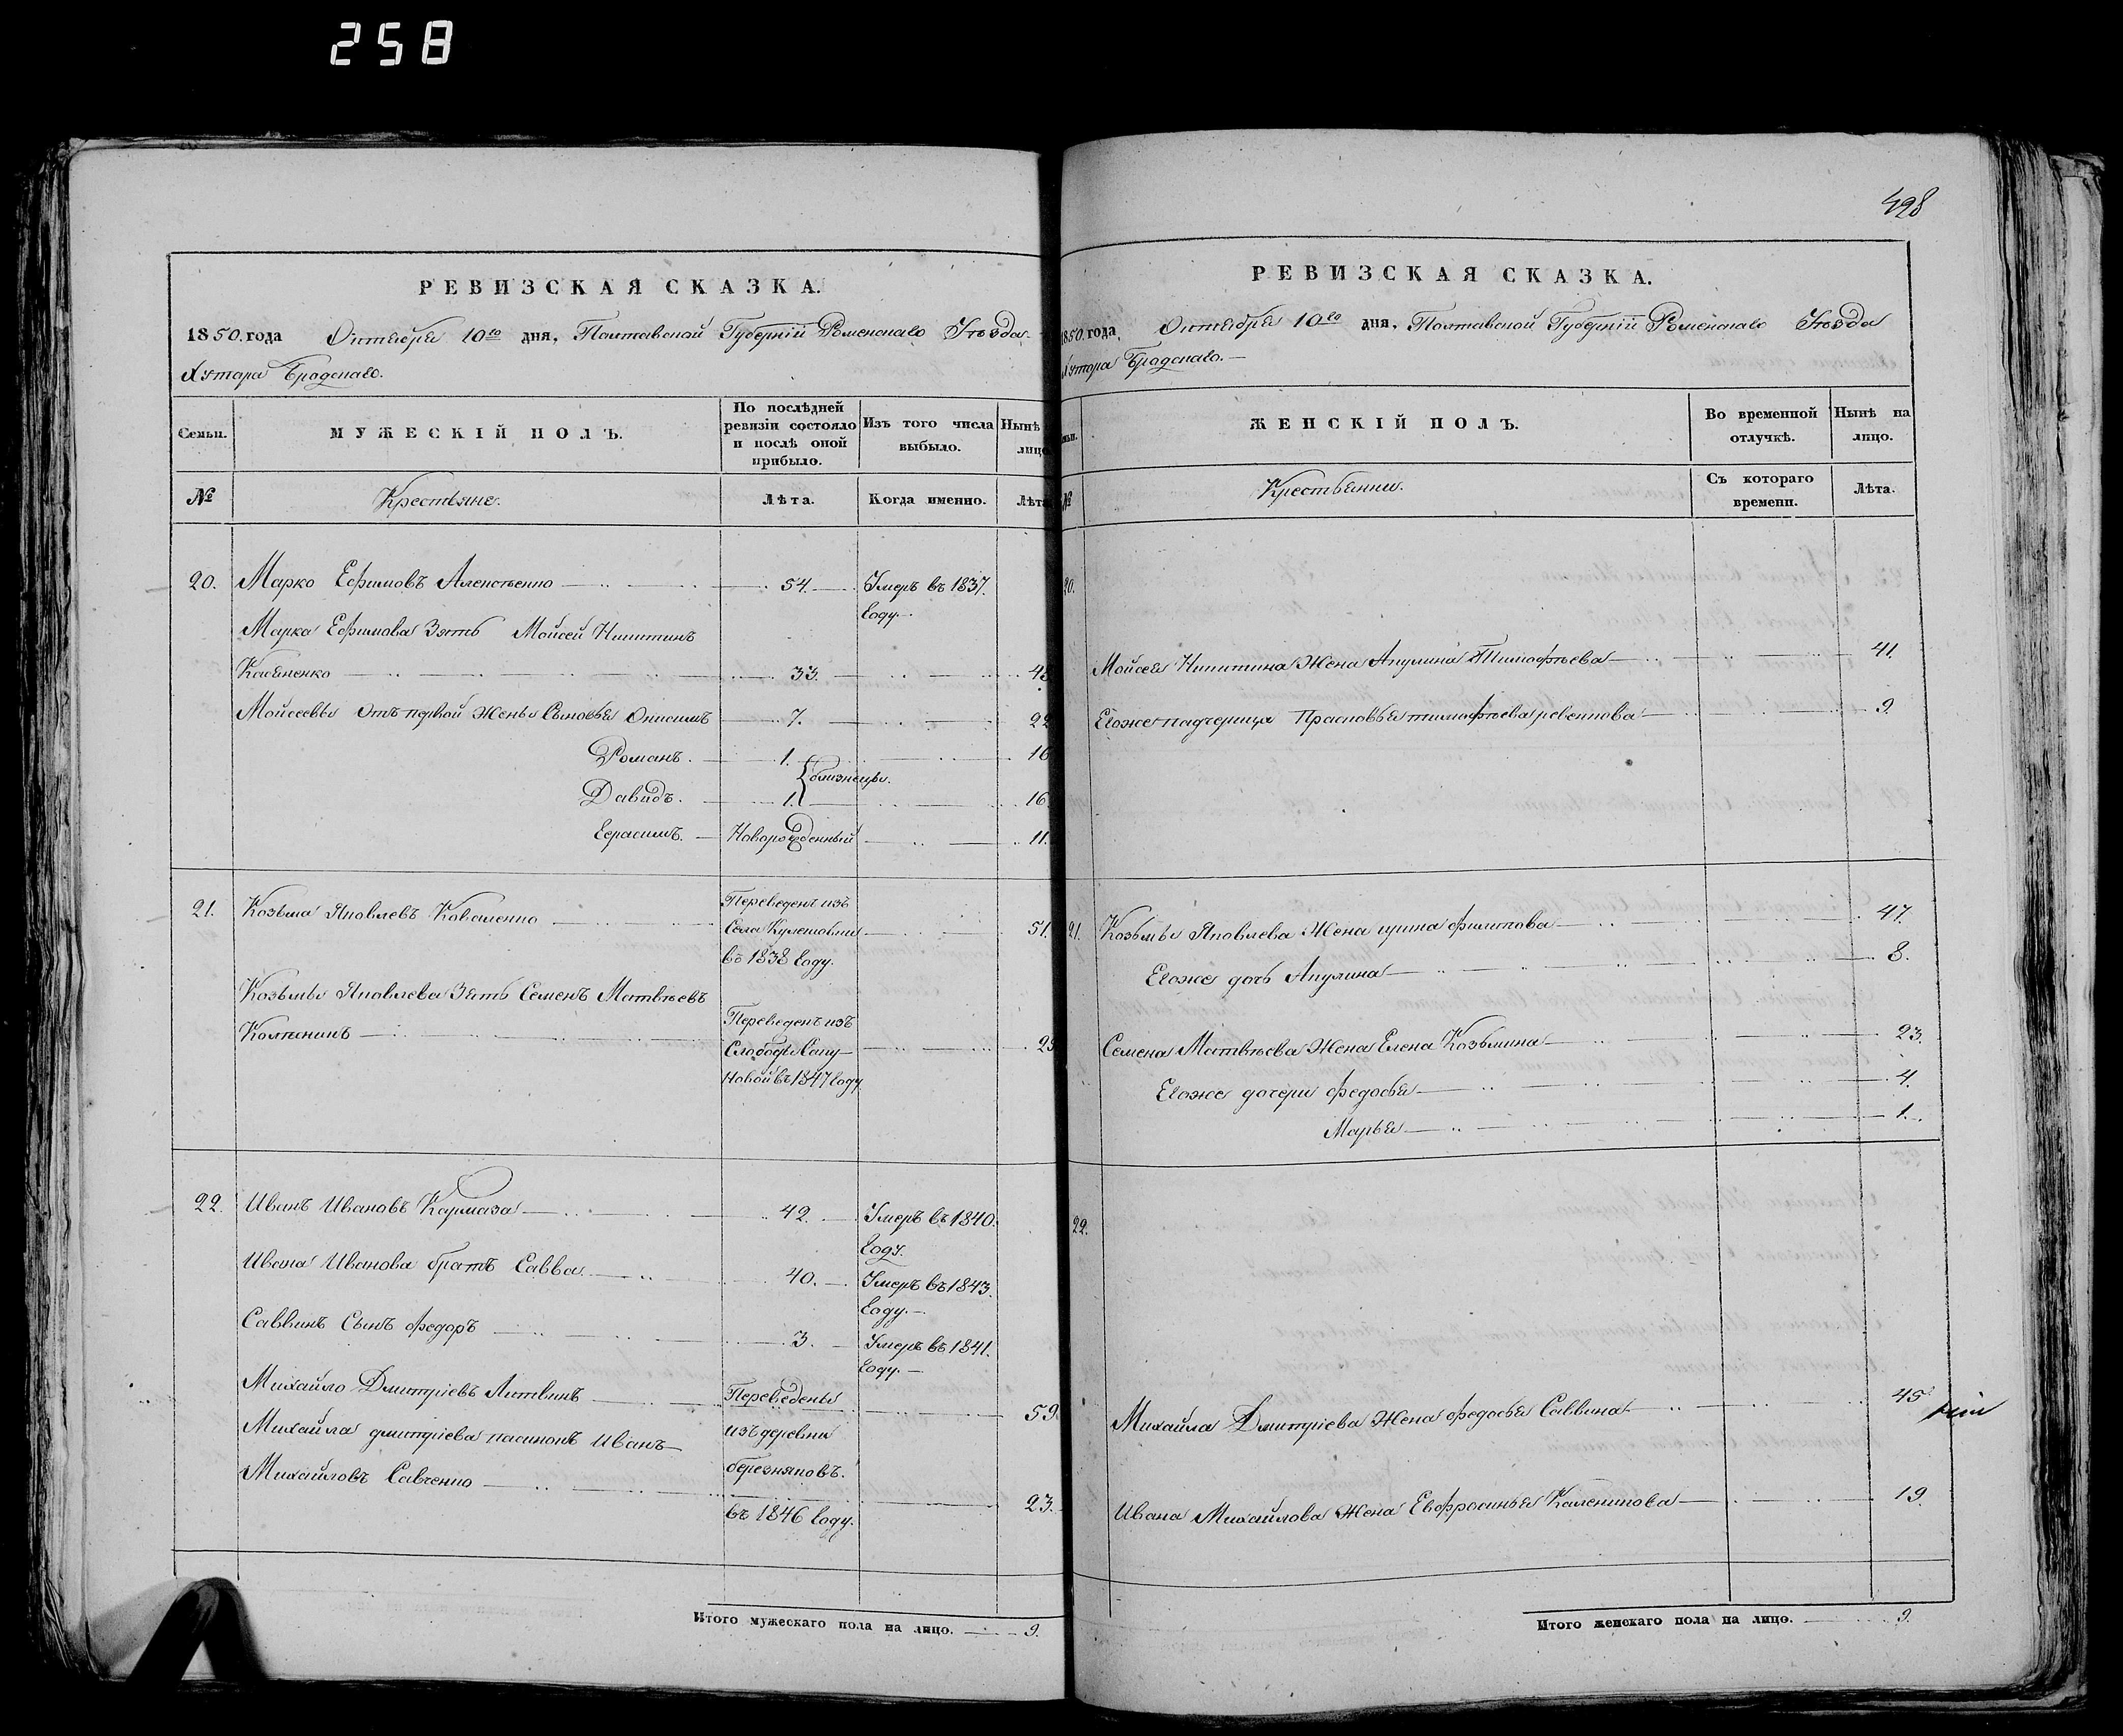 258
РЕВИЗСКАЯ СКАЗКА.
1850. года Октября 10го дня, Полтавской Губерніи Роменскаго Уѣзда
Хутора Бродскаго.
Семьи. МУЖЕСКІЙ ПОЛЪ. По послѣдней ревизіи состояло и послѣ оной прибыло. Изъ того числа выбыло. Нынѣ лицо
№ Крестьяне. Лѣта. Когда именно. Лѣта
20. Марко Ефимовъ Алексѣенко 54. Умеръ въ 1837.
году.
Марка Ефимова Зять Мойсей Никитинъ
33. 48
Мойсеевы Отъ первой Жены Сыновья Онисимъ 7. 22
Романъ. 1. 16
близнецы.
Давидъ. 1. 16.
Герасимъ. Новорожденный 11.
21. Козьма Яковлевъ Коваленко Переведенъ изъ
Села Кулешовки 51.
въ 1838 году.
Козьмы Яковлева Зять Семенъ Матвѣевъ
Калининъ Переведенъ изъ
Слободы 25
въ 1847 году
22. Иванъ Ивановъ Кармаза 42. Умеръ въ 1840.
году.
Ивана Иванова братъ Савва 40. Умеръ въ 1843.
году.
Саввинъ Сынъ Федоръ 3. Умеръ въ 1841.
году.
Михайло Дмитріевъ Литвинъ Переведены 59
Михайла дмитріева пасинокъ Иванъ изъ деревни
Михайловъ Савченко березняковъ.
въ 1846 году. 23.
Итого мужескаго пола на лицо. 9.
498
РЕВИЗСКАЯ СКАЗКА.
1850. года Октября 10го дня, Полтавской Губерніи Роменскаго Уѣзда
Хутора Бродскаго.
ЖЕНСКІЙ ПОЛЪ. Во временной отлучкѣ. Нынѣ на лицо.
№ Крестьянки. Съ котораго времени. Лѣта.
20.
Мойсея Никитина Жена Акулина Тимофѣева 41.
Егоже падчерица Прасковья тимофѣева ревенкова 9.
21. Козьмы Яковлева Жена ирина филипова 47.
Егоже дочь Акулина 8.
Семена Матвѣева Жена Елена Козьмина 23.
Егоже дочери федосья 4.
Марья 1.
22.
Михайла Дмитріева Жена федосья Саввина 45
Ивана Михайлова Жена Евфросинья Каленикова 19.
Итого женскаго пола на лицо. 9.